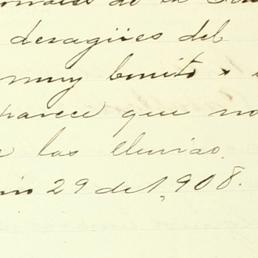 de la
desagües del
muy bonito
parece que no
las lluvias.
29 de 1,908.